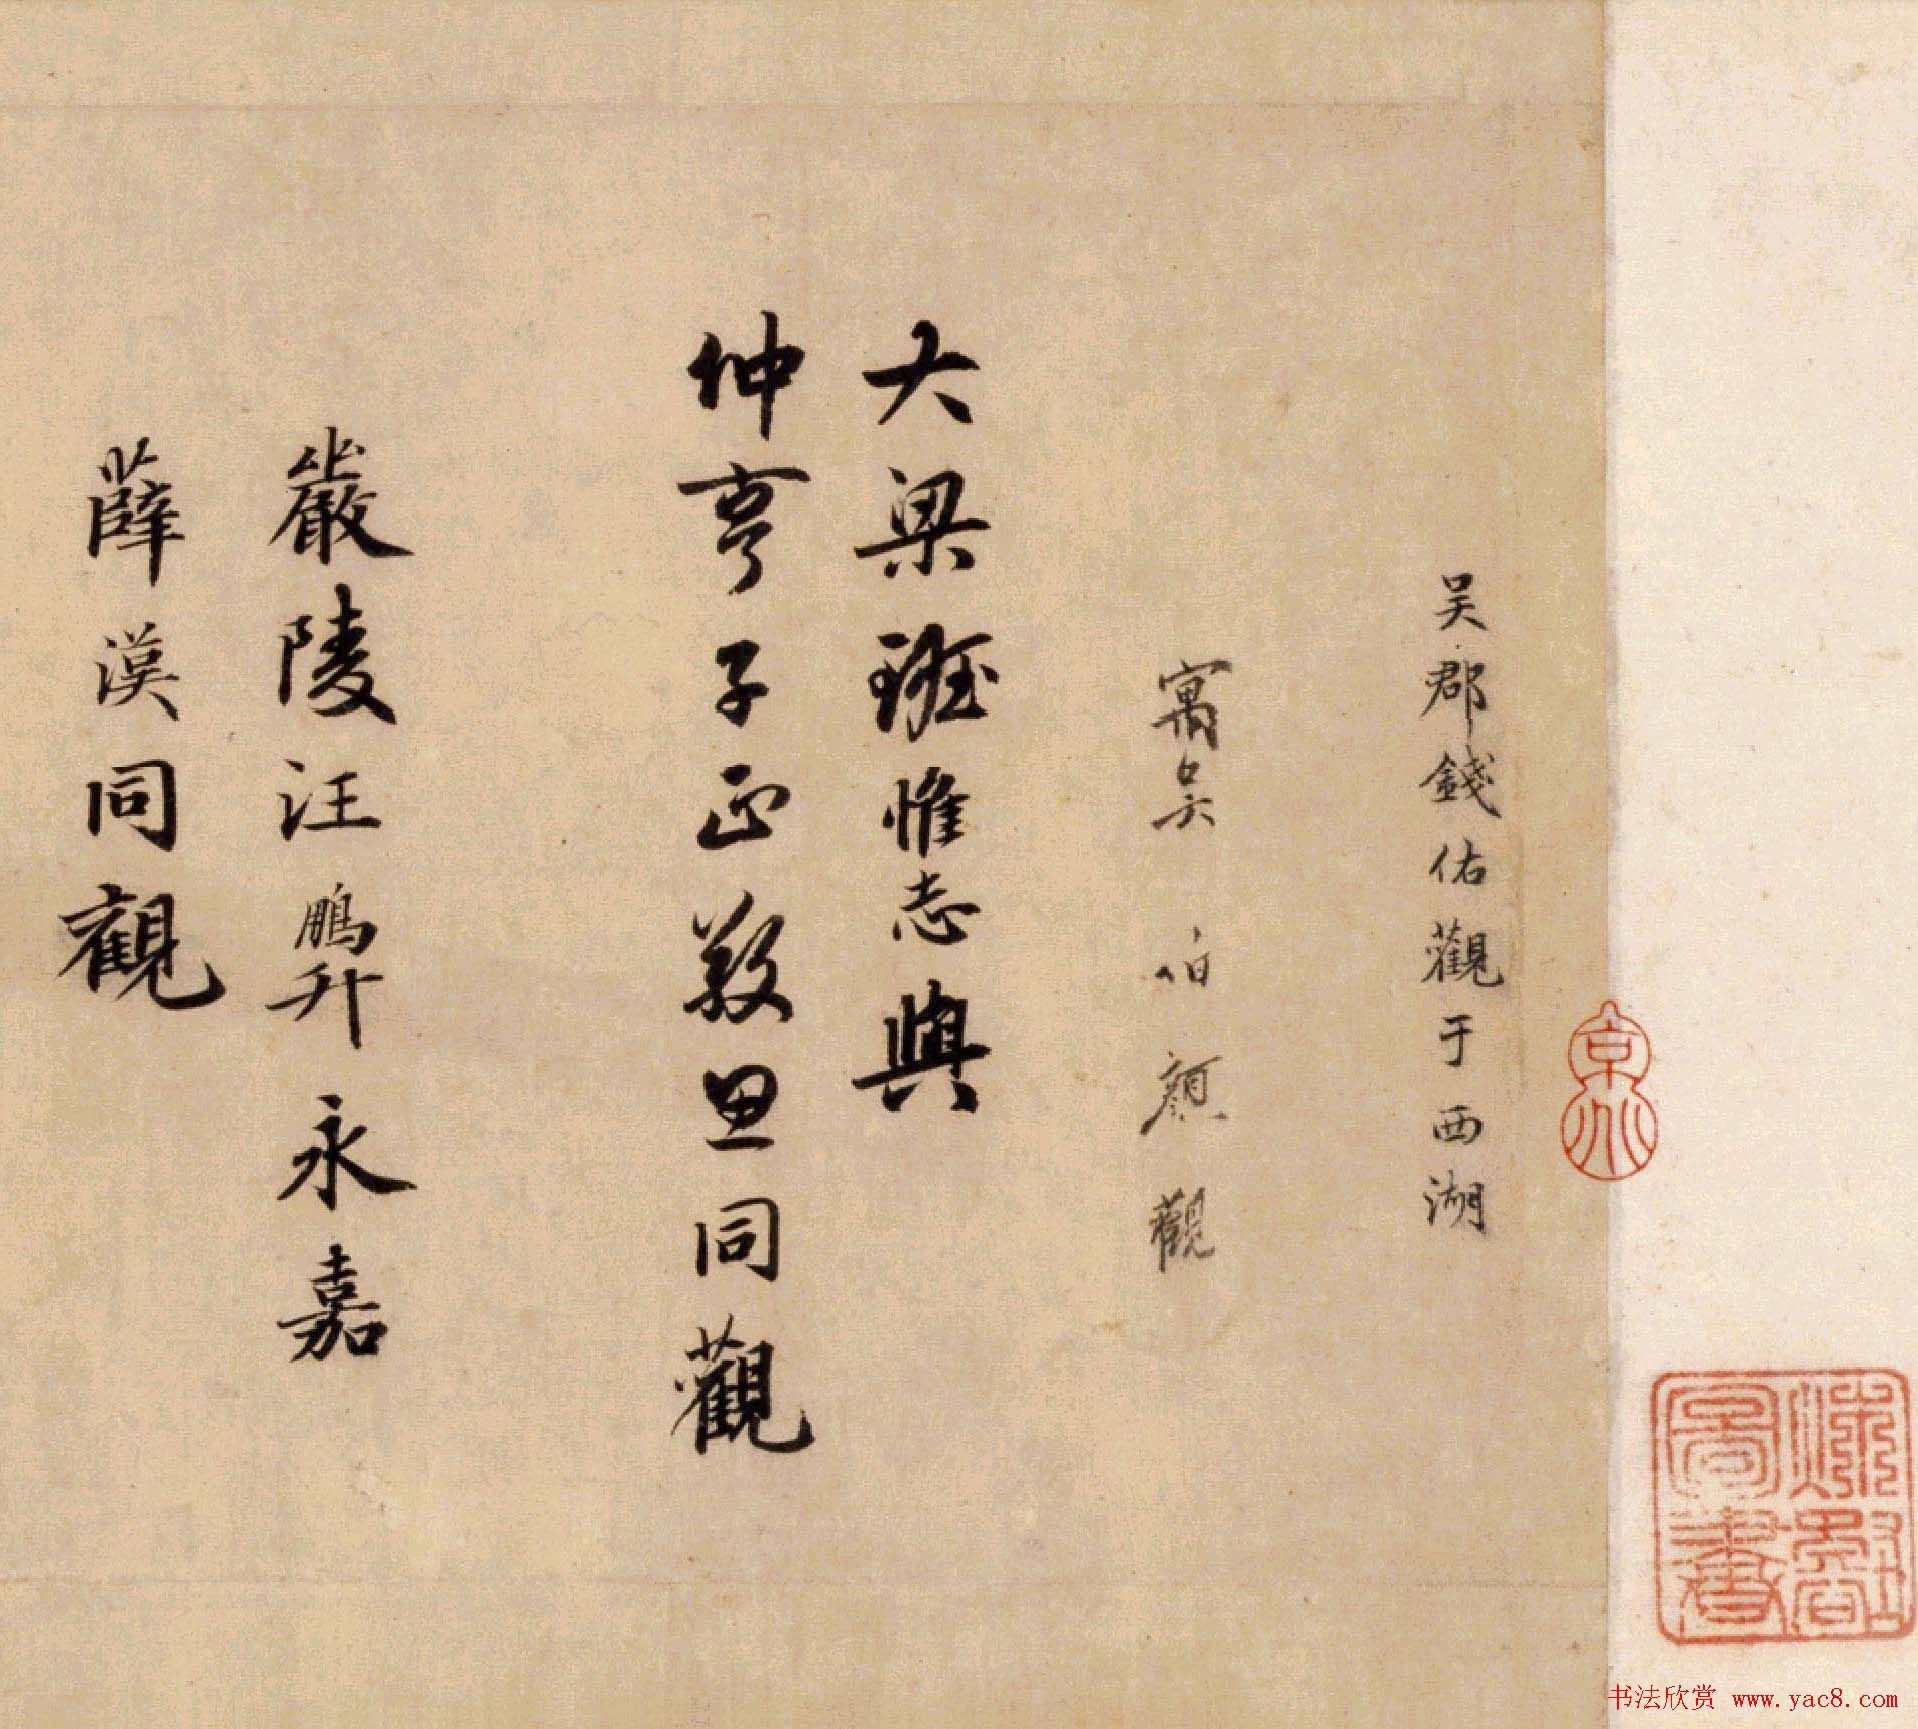 吴郡錢佑觀于西湖
寓吴伯顏觀
大梁班惟志與
仲亨子正敬思同觀
嚴陵汪鵬升永嘉
薛漢同觀
書
书法欣赏 www.yac8.com